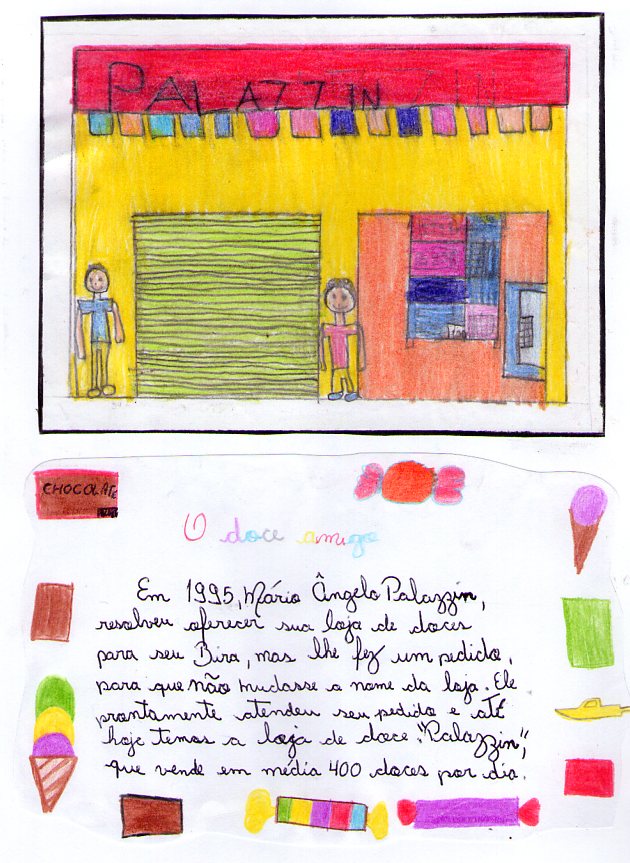 PALAZZIN
CHOCOLATE
O doce amigo
Em 1995, Mário Ângelo Palazzin,
resolveu oferecer sua loja de doces
para seu Bira, mas lhe fez um pedido,
para que não mudasse o nome da loja. Ele
prontamente atendeu seu pedido e até
hoje temos a loja de doce "Palazzin",
que vende em média 400 doces por dia.